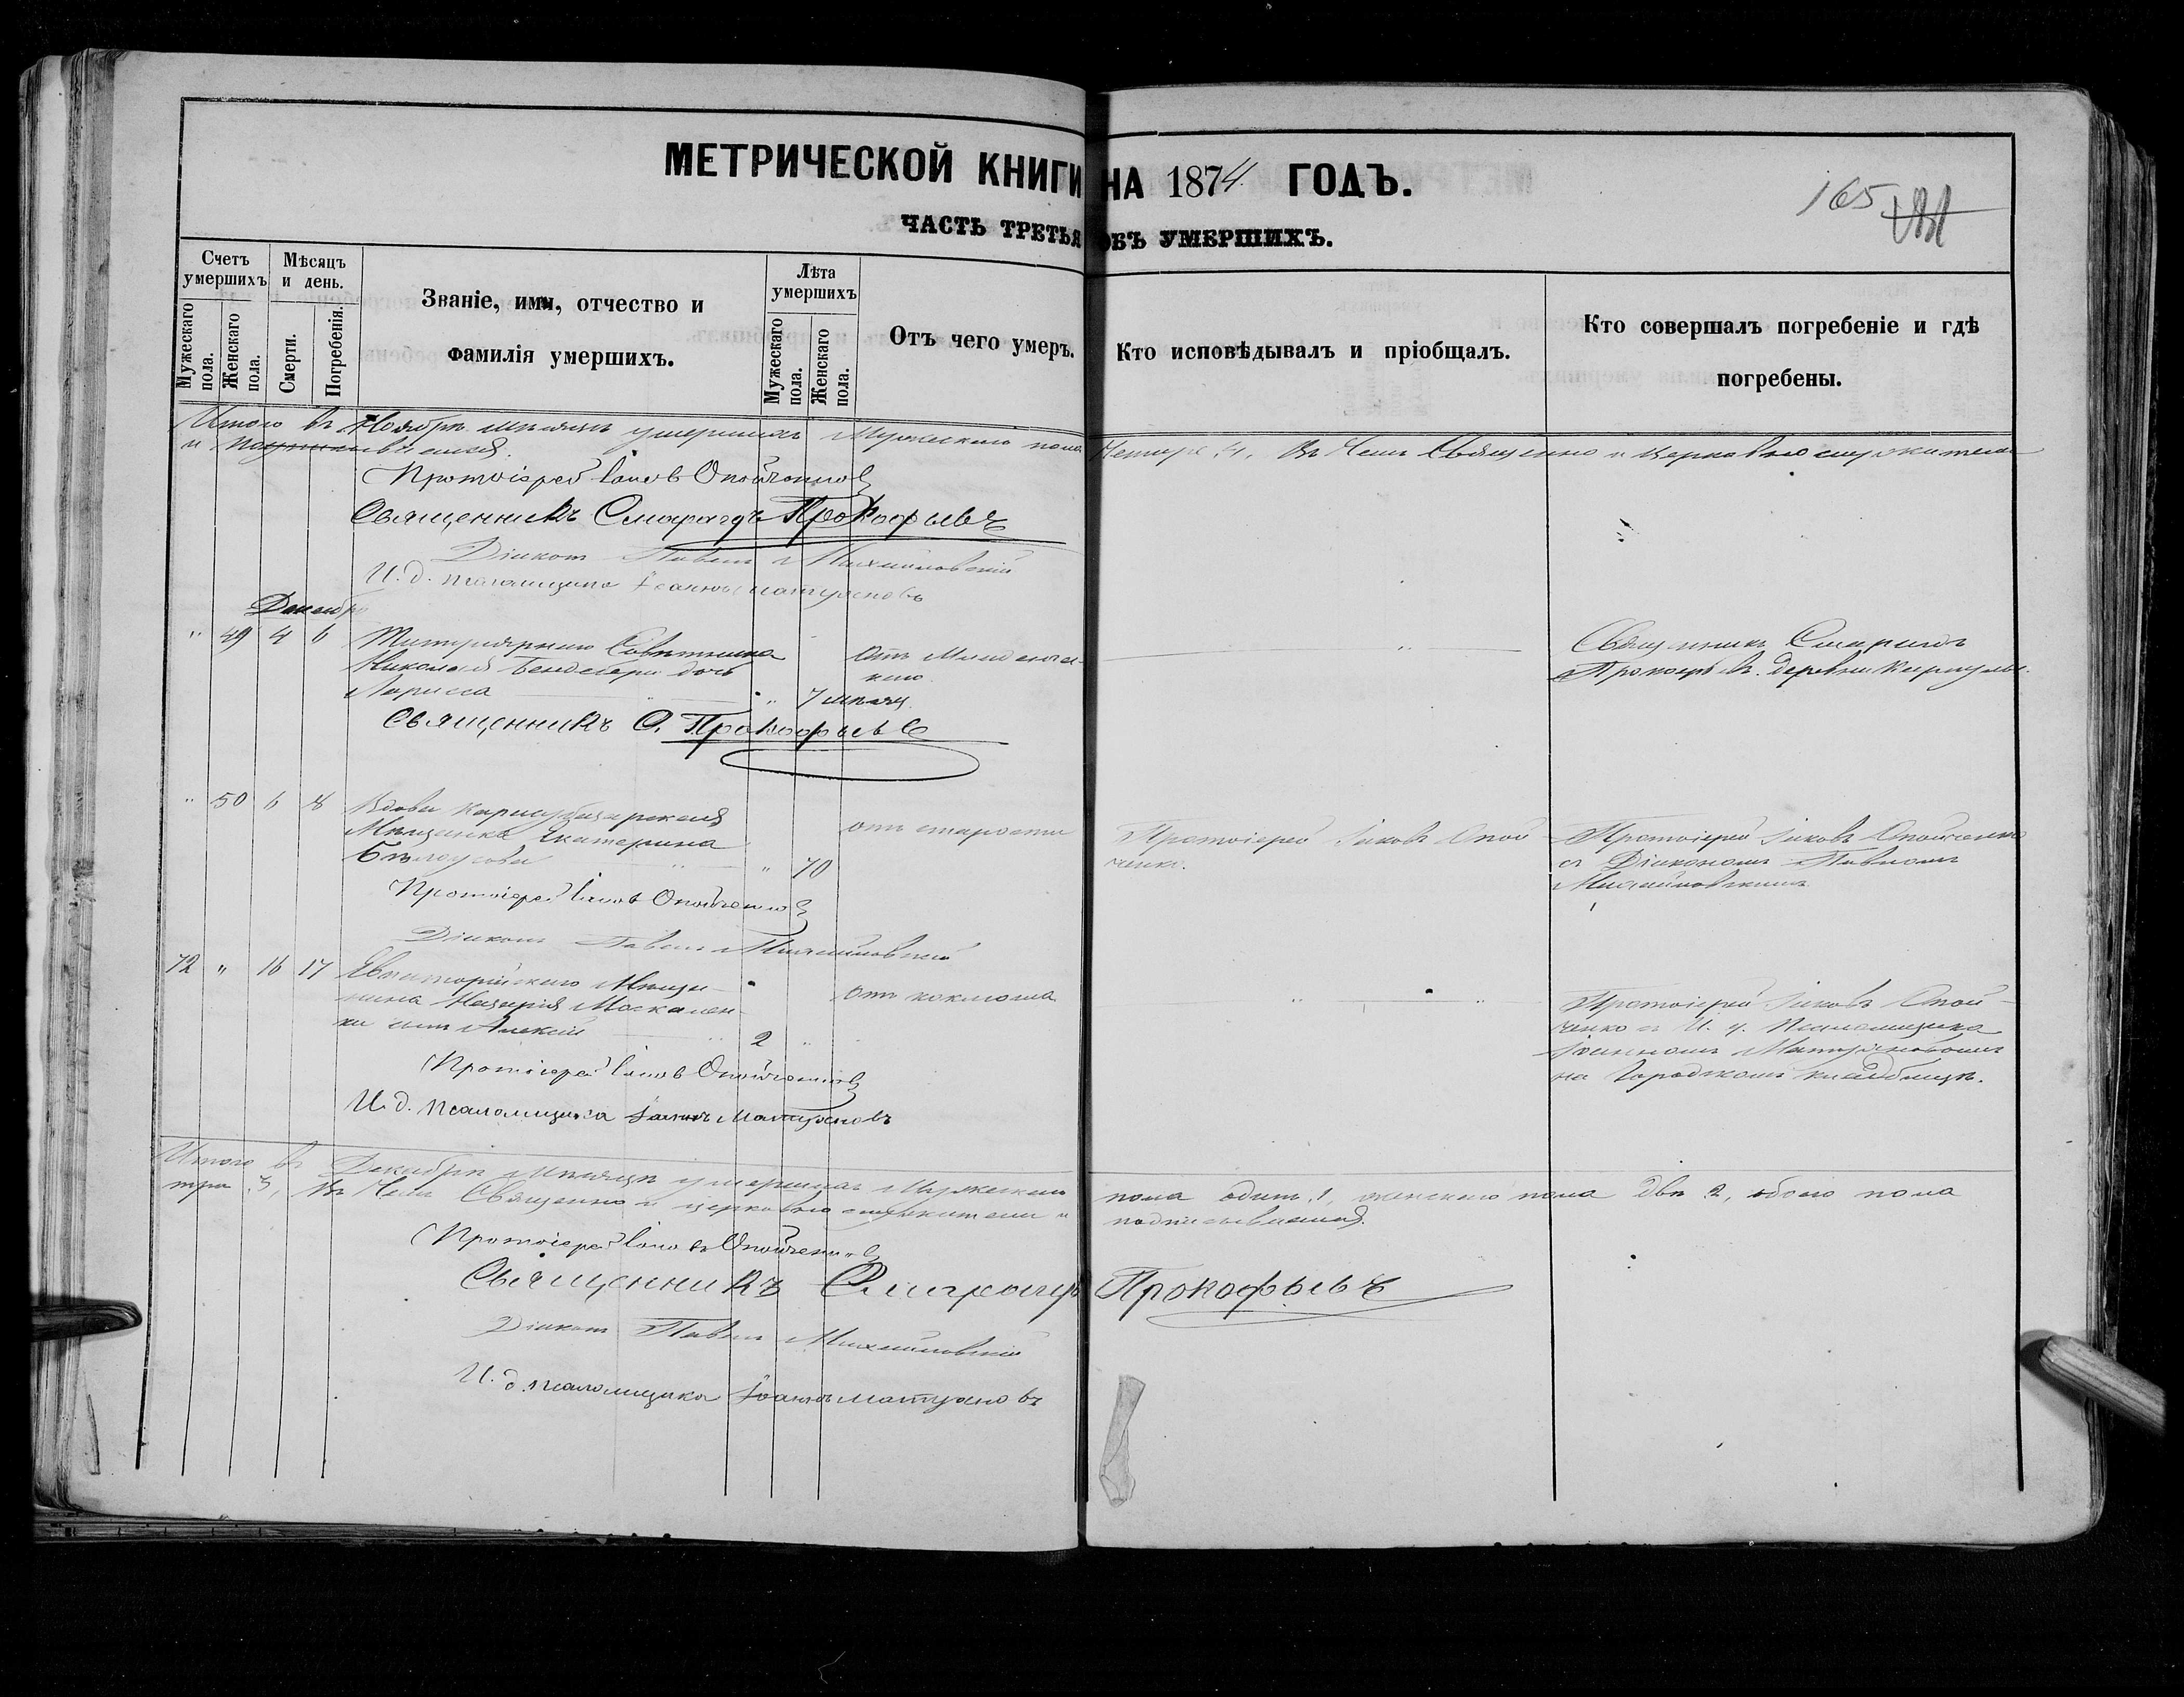 МЕТРИЧЕСКОЙ КНИГИ НА 1874 ГОДЪ.
165
ЧАСТЬ ТРЕТЬЯ ОБЪ УМЕРШИХЪ.
Счетъ умершихъ
Мѣсяцъ и день.
Званіе, имя, отчество и фамилія умершихъ.
Лѣта умершихъ
Отъ чего умеръ.
Кто исповѣдывалъ и пріобщалъ.
Кто совершалъ погребеніе и гдѣ погребены.
Мужескаго пола.
Женскаго пола.
Смерти.
Погребенія.
Мужескаго пола.
Женскаго пола.
Итого въ Ноябрѣ мѣсяцѣ умершихъ Мужескаго пола Четыре 4. Въ чемъ Священно и церковнослужители
и подписываемся.
Протоіерей Іаковъ Опойченко
Священникъ Смарагдъ Прокофьевъ
Діаконъ Павелъ Михайловскій
И. д. псаломщика Іоаннъ Матушновъ
Декабрь
" 49 4 6 Титулярнаго Совѣтника
Николая дочь
Лариса " 7 мѣсяц.
отъ Младенчес-
каго
"
Священникъ Смарагдъ
Прокофьевъ. деревни
Священникъ С. Прокофьевъ
" 50 6 8 Вдова Карасубазарская
Мѣщанка Екатерина
Бѣлоусова " 70
отъ старости
Протоіерей Іаковъ Опой-
ченко.
Протоіерей Іаковъ Опойченко
съ Діакономъ Павломъ
Михайловскимъ
Протоіерей Іаковъ Опойченко
Діаконъ Павелъ Михайловскій
72 " 16 17 Евпаторійскаго Мѣща-
нина Назарія Москален-
ки сынъ Алексій 2 "
отъ коклюша
" "
Протоіерей Іаковъ Опой-
ченко съ И. д. Псаломщика
Іоанномъ Матушновымъ
на Городскомъ кладбищѣ.
Протоіерей Іаковъ Опойченко
И. д. псаломщика Іоаннъ Матушновъ
Итого въ Декабрѣ Мѣсяцѣ умершихъ Мужескаго пола одинъ 1, женскаго пола двѣ 2, обоего пола
три 3, Въ чемъ Священно и церковно служители и подписываемся.
Протоіерей Іаковъ Опойченко
Священникъ Смарагдъ Прокофьевъ
Діаконъ Павелъ Михайловскій
И. д. псаломщика Іоаннъ Матушновъ